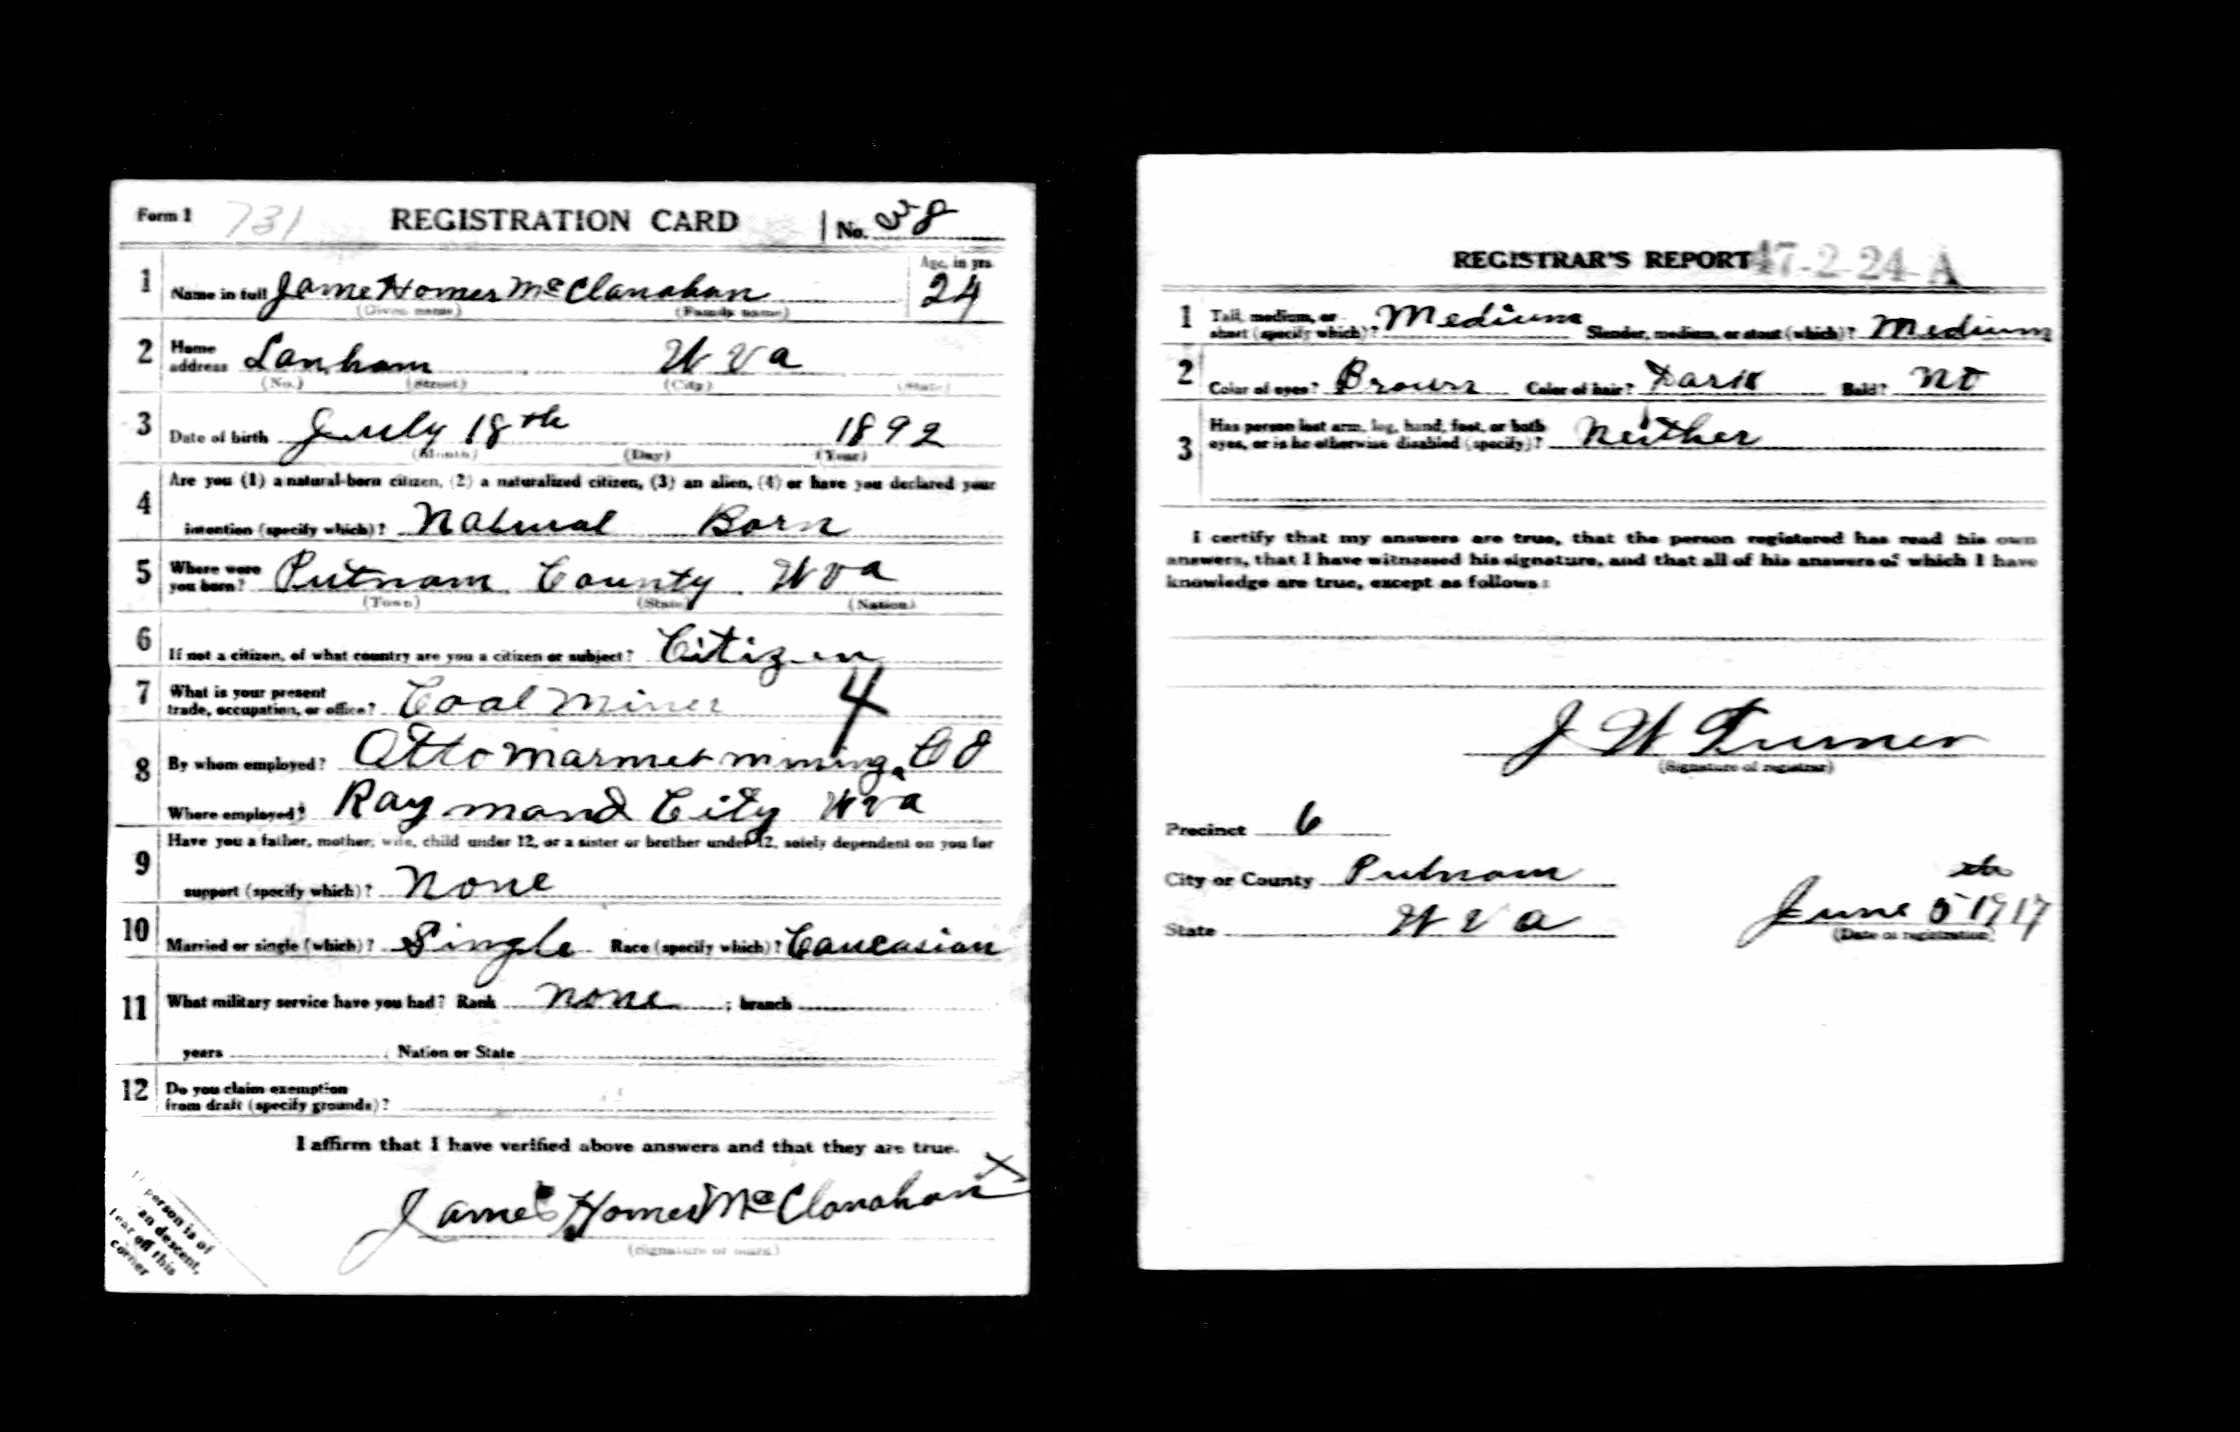 Form 1 731 REGISTRATION CARD No. 38
1 Name in full Jame Homer McClanahan Age, in yrs. 24
(Given name) (Family name)
2 Home address Lanham W Va
(No.) (Street) (City) (State)
3 Date of birth July 18th 1892
(Month) (Day) (Year)
Are you (1) a natural-born citizen, (2) a naturalized citizen, (3) an alien, (4) or have you declared your
4 intention (specify which)? Natural Born
5 Where were you born? Putnam County W va
(Town) (State) (Nation)
6 If not a citizen, of what country are you a citizen or subject? Citizen
7 What is your present trade, occupation, or office? Coal Miner 4
8 By whom employed? Otto Marmet mining Co
Where employed? Raymond City W va
Have you a father, mother, wife, child under 12, or a sister or brother under 12, solely dependent on you for
9 support (specify which)? None
10 Married or single (which)? Single Race (specify which)? Caucasian
11 What military service have you had? Rank none ; branch
years ; Nation or State
12 Do you claim exemption
from draft (specify grounds)?
I affirm that I have verified above answers and that they are true.
James Homer McClanahan X
(Signature or mark)
person is of
an descent,
tear off this
corner
REGISTRAR'S REPORT 47-2-24-A
1 Tall, medium, or short (specify which)? Medium Slender, medium, or stout (which)? Medium
2 Color of eyes? Brown Color of hair? Dark Bald? No
3 Has person lost arm, leg, hand, foot, or both
eyes, or is he otherwise disabled (specify)? Neither
I certify that my answers are true, that the person registered has read his own
answers, that I have witnessed his signature, and that all of his answers of which I have
knowledge are true, except as follows:
J W Turner
(Signature of registrar)
Precinct 6
City or County Putnam
State W Va June 5th 1917
(Date of registration)